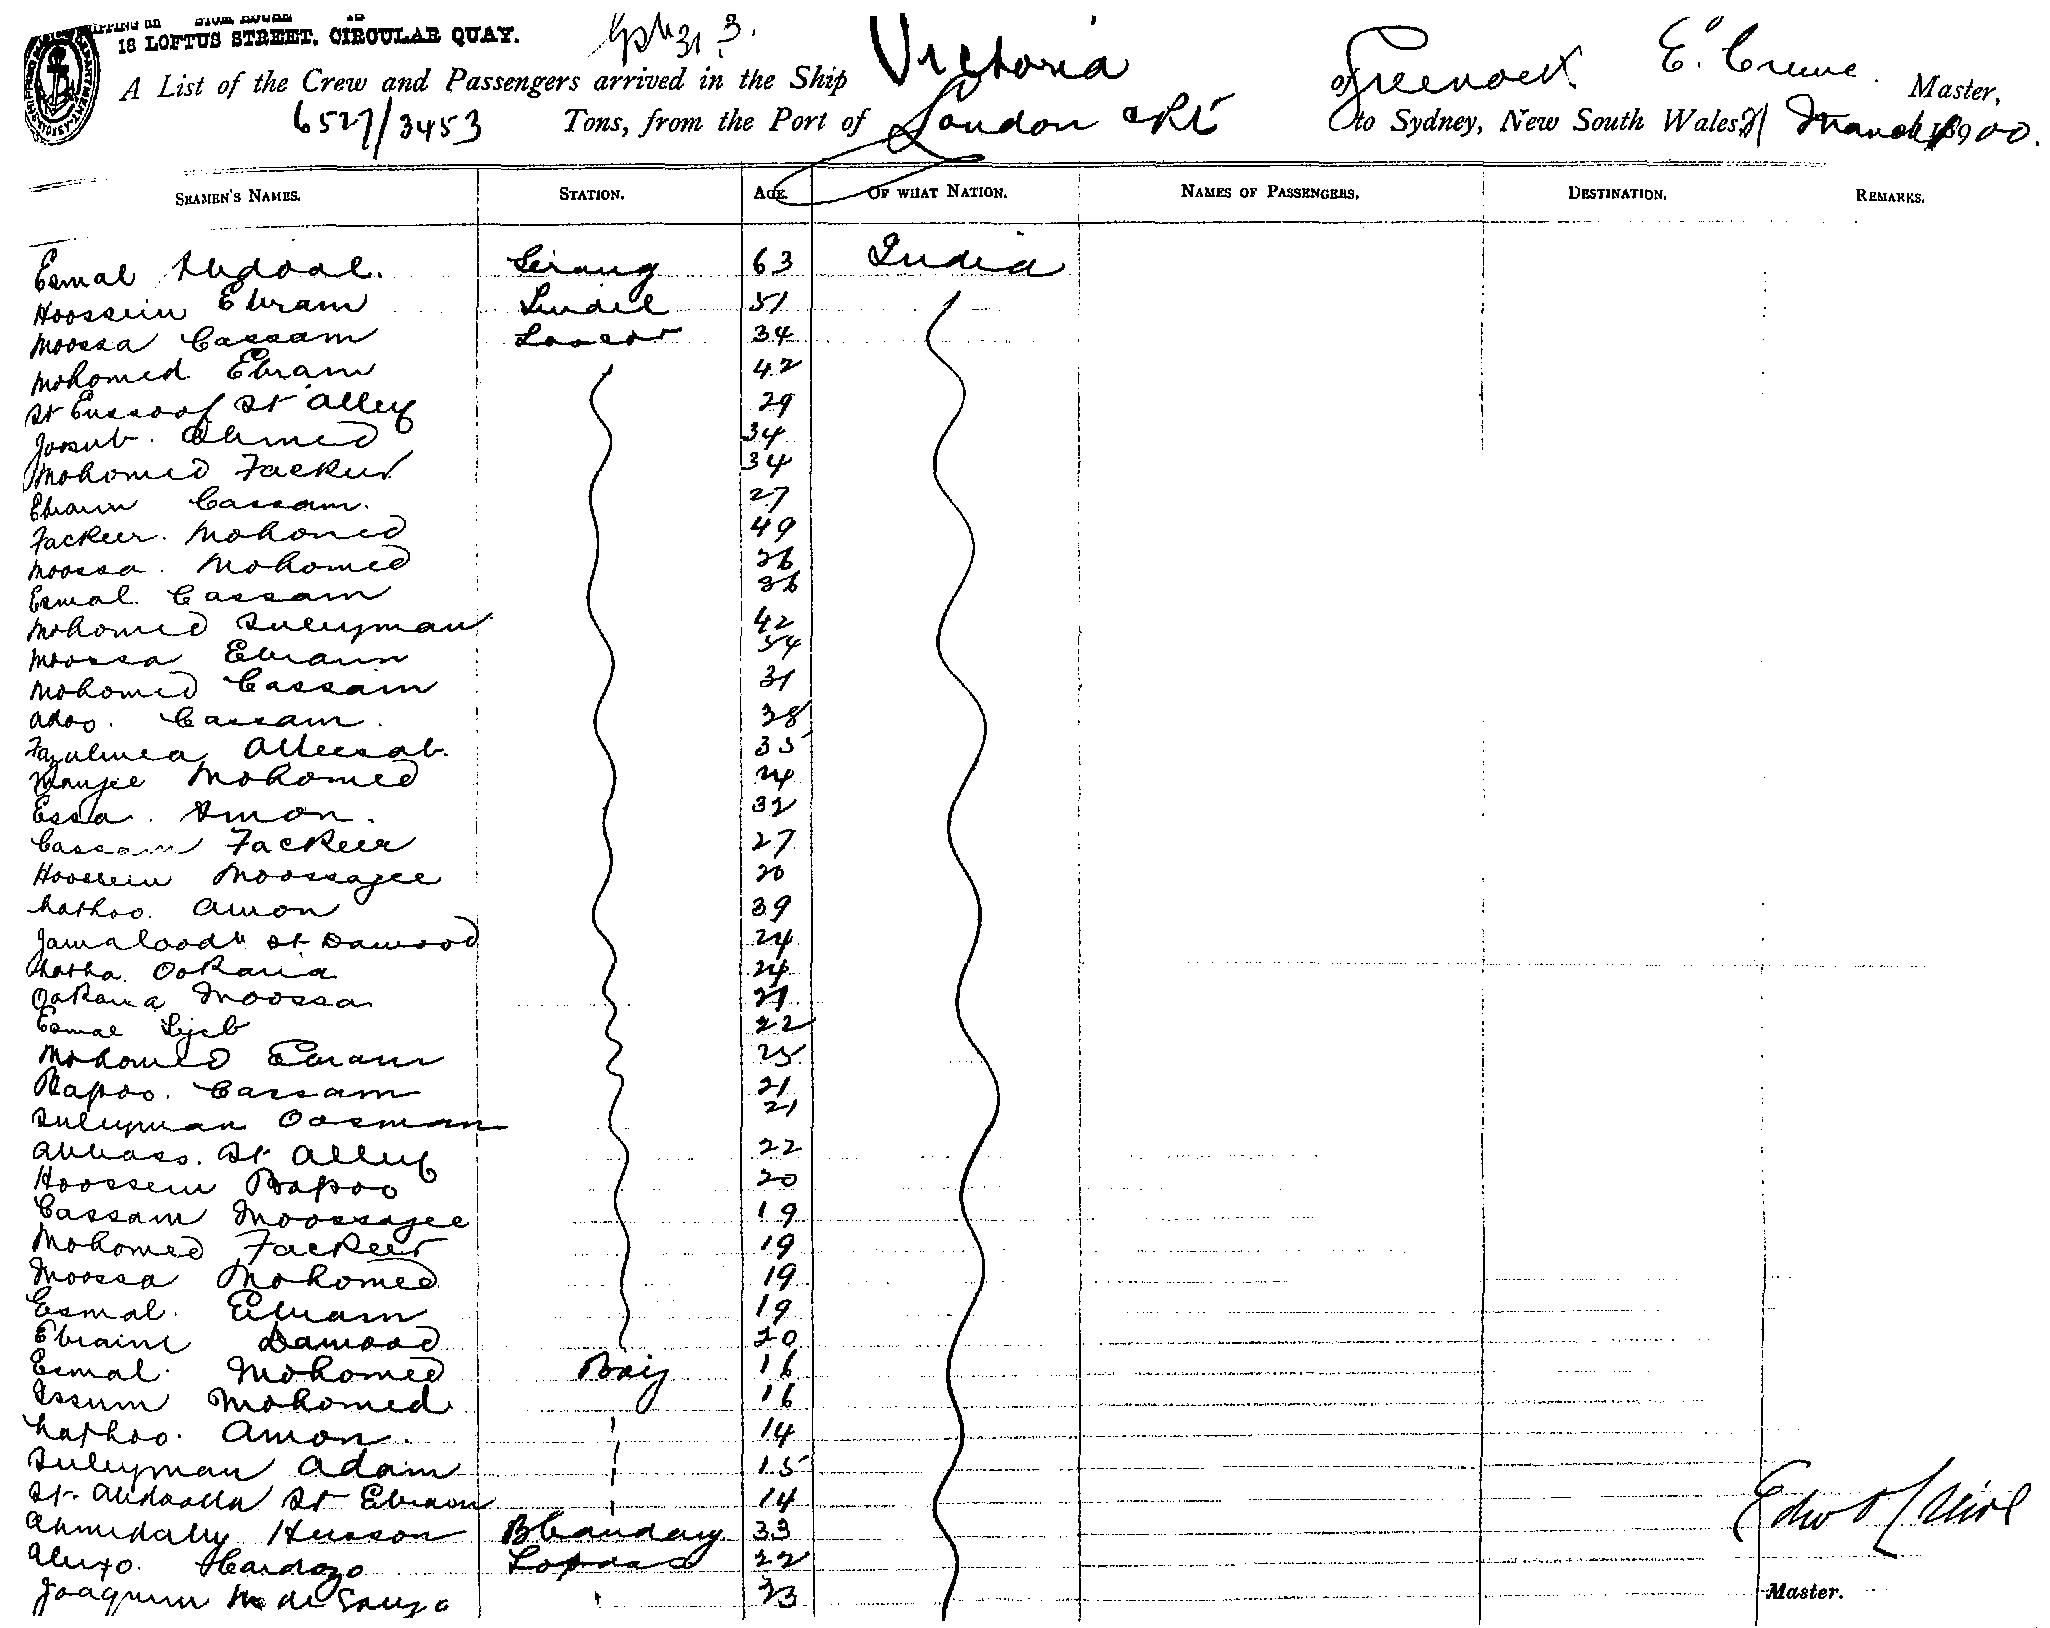 18 LOFTUS STREET, CIRCULAR QUAY.
A List of the Crew and Passengers arrived in the Ship Victoria of Greenock E. Crewe. Master,
6527/3453 Tons, from the Port of London &c to Sydney, New South Wales, 31 March 1900.
SEAMEN'S NAMES. STATION. AGE. OF WHAT NATION. NAMES OF PASSENGERS. DESTINATION. REMARKS.
Esmal Abdool. Serang 63 India
Hoossein Ebram Tindel 51
Moossa Cassam Lascar 34
Mohomed Ebram 42
St Eussoof St Alley 29
Joosub. Ahmed 34
Mohomed Fackeer 34
Ebram Cassam. 27
Fackeer. Mohomed 49
Moossa. Mohomed 36
Esmal. Cassam 36
Mohomed Suleyman 42
Moossa Ebram 54
Mohomed Cassam 31
Adoo. Cassam. 38
Alleesab. 35
Mohomed 24
Essa. Amon. 32
Cassam Fackeer 27
Hoossein Moossajee 20
Nathoo. Amon 39
Jamalood St Dawood 24
Natha. Ookana 24
Ookana Moossa 21
Esmal 22
Mohomed Ebram 25
Bapoo. Cassam 21
Suleyman Oosman 21
Abbass. St Alley 22
Hoossein Bapoo 20
Cassam Moossajee 19
Mohomed Fackeer 19
Moossa Mohomed 19
Esmal. Ebram 19
Ebraim Dawood 20
Esmal. Mohomed Boy 16
Essum Mohomed 16
Nathoo. Amon. 14
Suleyman Adam 15
St. Abdoolla St Ebram 14
Ahmedally Husson Bhandary 33
Cardozo 22
Joaquim de Souza 23
Master.